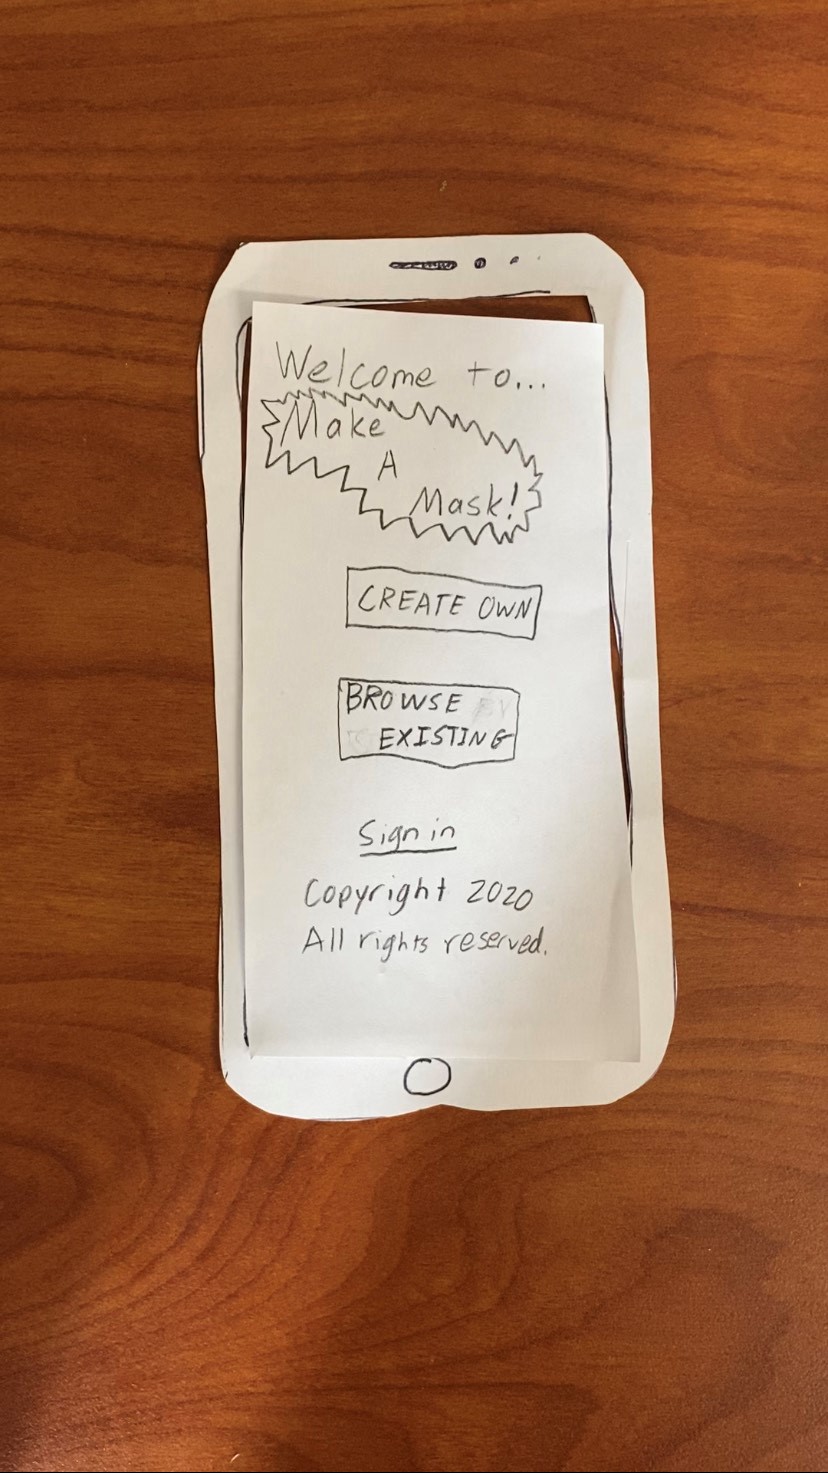 Welcome to...
Make
A
Mask!
CREATE OWN
BROWSE
EXISTING
Sign in
Copyright 2020
All rights reserved.